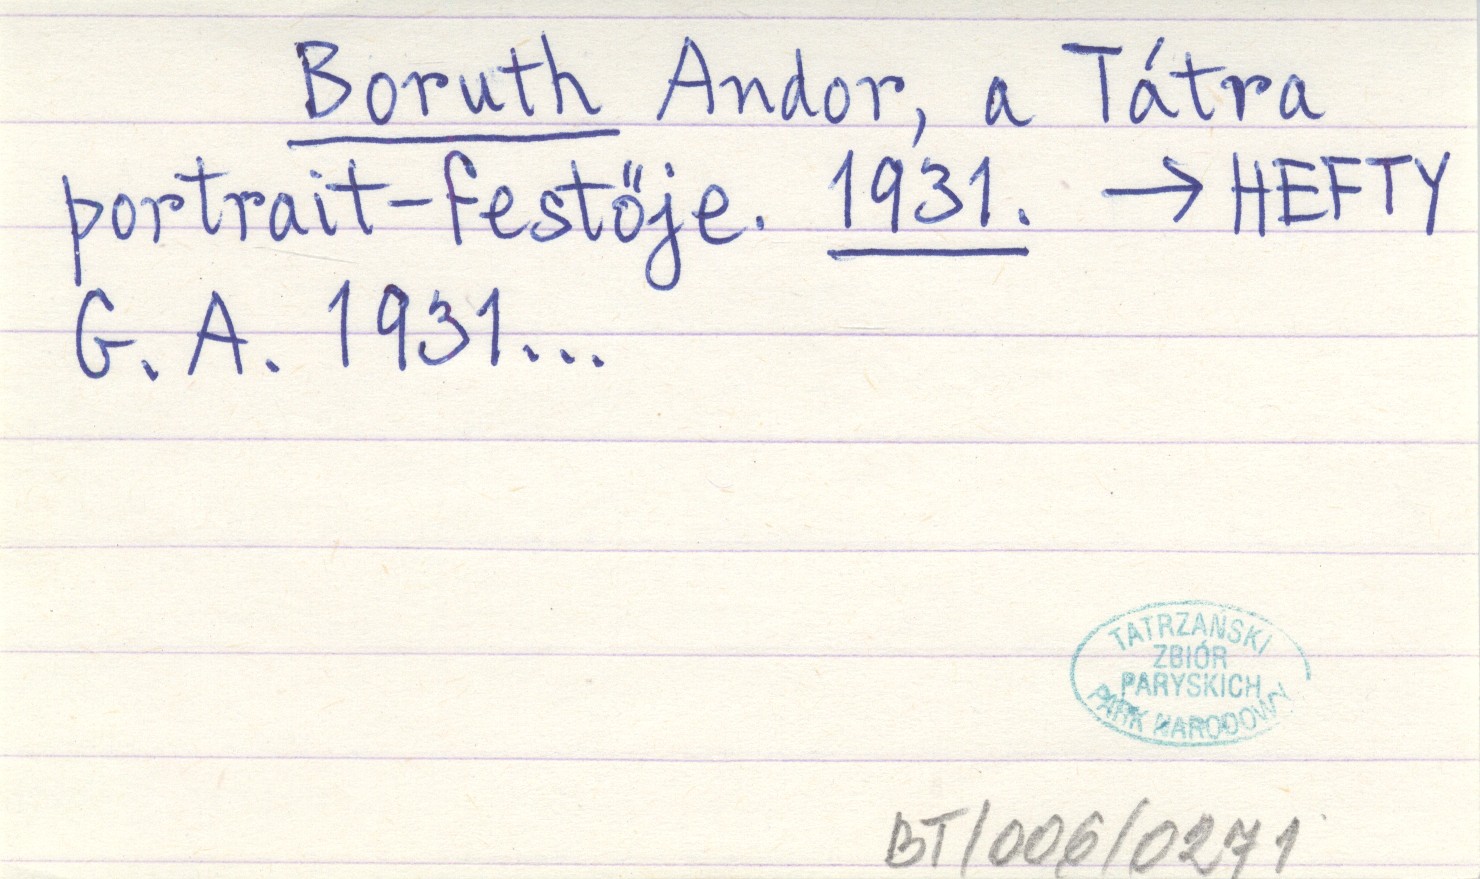 Boruth Andor, a Tátra
portrait-festője. 1931. → HEFTY
G. A. 1931...
TATRZAŃSKI
ZBIÓR
PARYSKICH
PARK NARODOWY
BT/006/0271